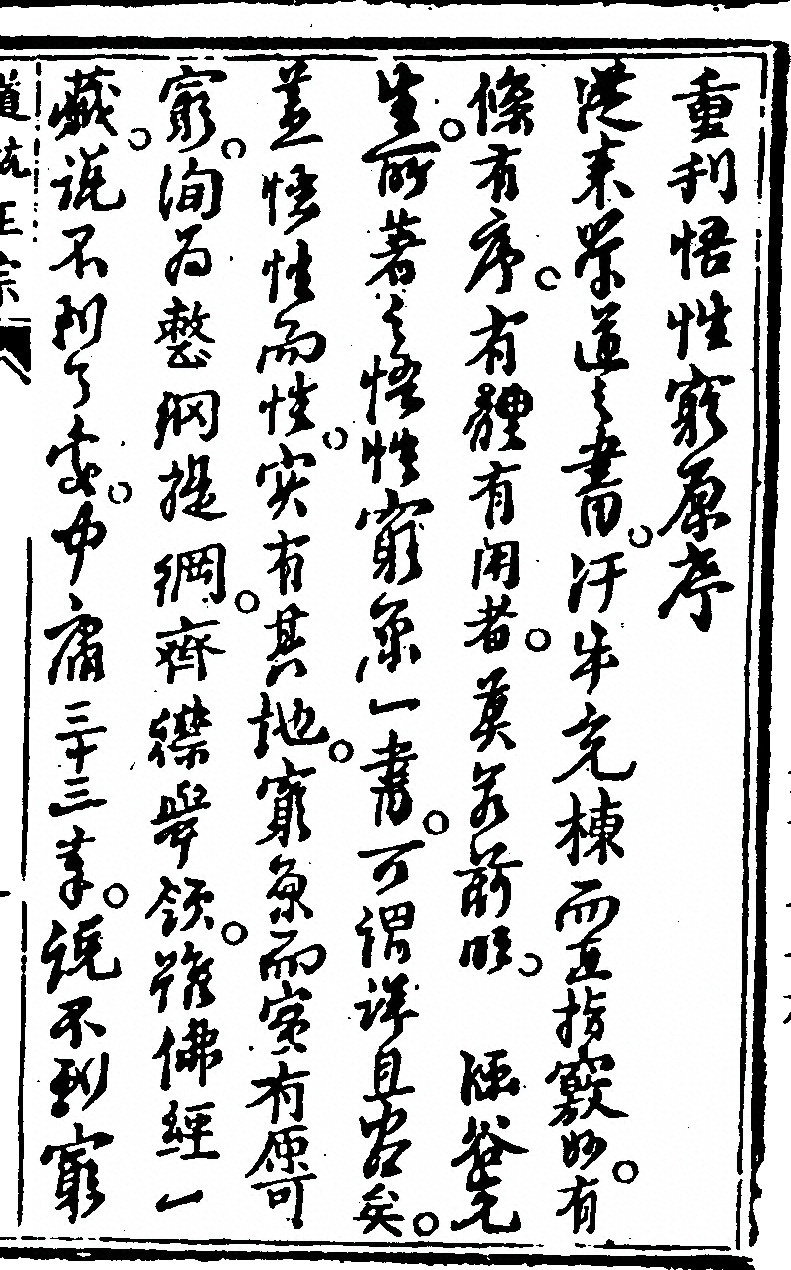 重刋悟性窮原序
從來學道之書。汗牛充棟而直指竅妙。有
條有序。有體有用者。莫若前明。涵谷先
生。所著之悟性窮原一書。可謂詳且矣。
蓋悟性而性。實有其地。窮原而實有原可
窮。洵為整網提綱。齊襟舉領。雖佛經一
藏。說不到了處。中庸三十三章。說不到窮
道統正宗